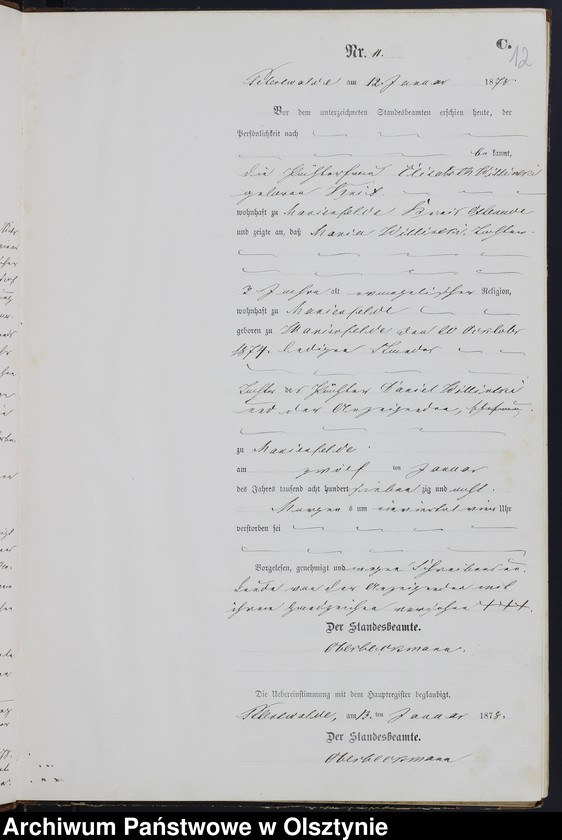 C.
12
Nr. 11.
am 12. Januar 1878.
Vor dem unterzeichneten Standesbeamten erschien heute, der
Persönlichkeit nach
be kannt,
die Elisabeth Willinski
geborene
wohnhaft zu Marienfelde Kreis Osterode
und zeigte an, daß Maria Willinski, Tochter
3 Jahre alt evangelischer Religion,
wohnhaft zu Marienfelde
geboren zu Marienfelde den 20 October
1874, ledigen Standes
Tochter des Daniel Willinski
und der Anzeigenden,
zu Marienfelde
am zwölf ten Januar
des Jahres tausend acht hundert sieben zig und acht.
Morgens um vier Uhr
verstorben sei
Vorgelesen, genehmigt und wegen Schreibensun-
kunde von der Anzeigenden mit
ihrem Handzeichen versehen +++.
Der Standesbeamte.
Die Uebereinstimmung mit dem Hauptregister beglaubigt.
am 13. ten Januar 1878.
Der Standesbeamte.
Archiwum Państwowe w Olsztynie